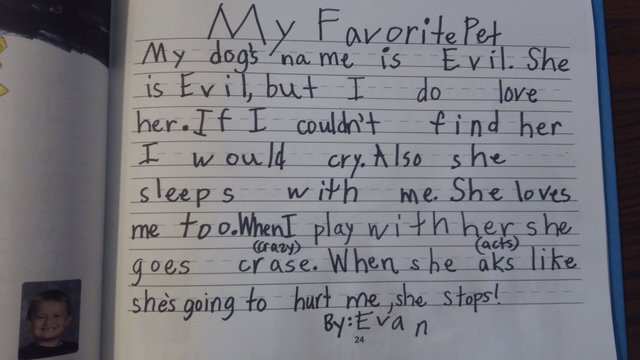 My Favorite Pet
My dog's name is Evil. She
is Evil, but I do love
her. If I couldn't find her
I would cry. Also she
sleeps with me. She loves
me too. When I play with her she
(crazy) (acts)
goes crase. When she aks like
she's going to hurt me, she stops!
By: Evan
24